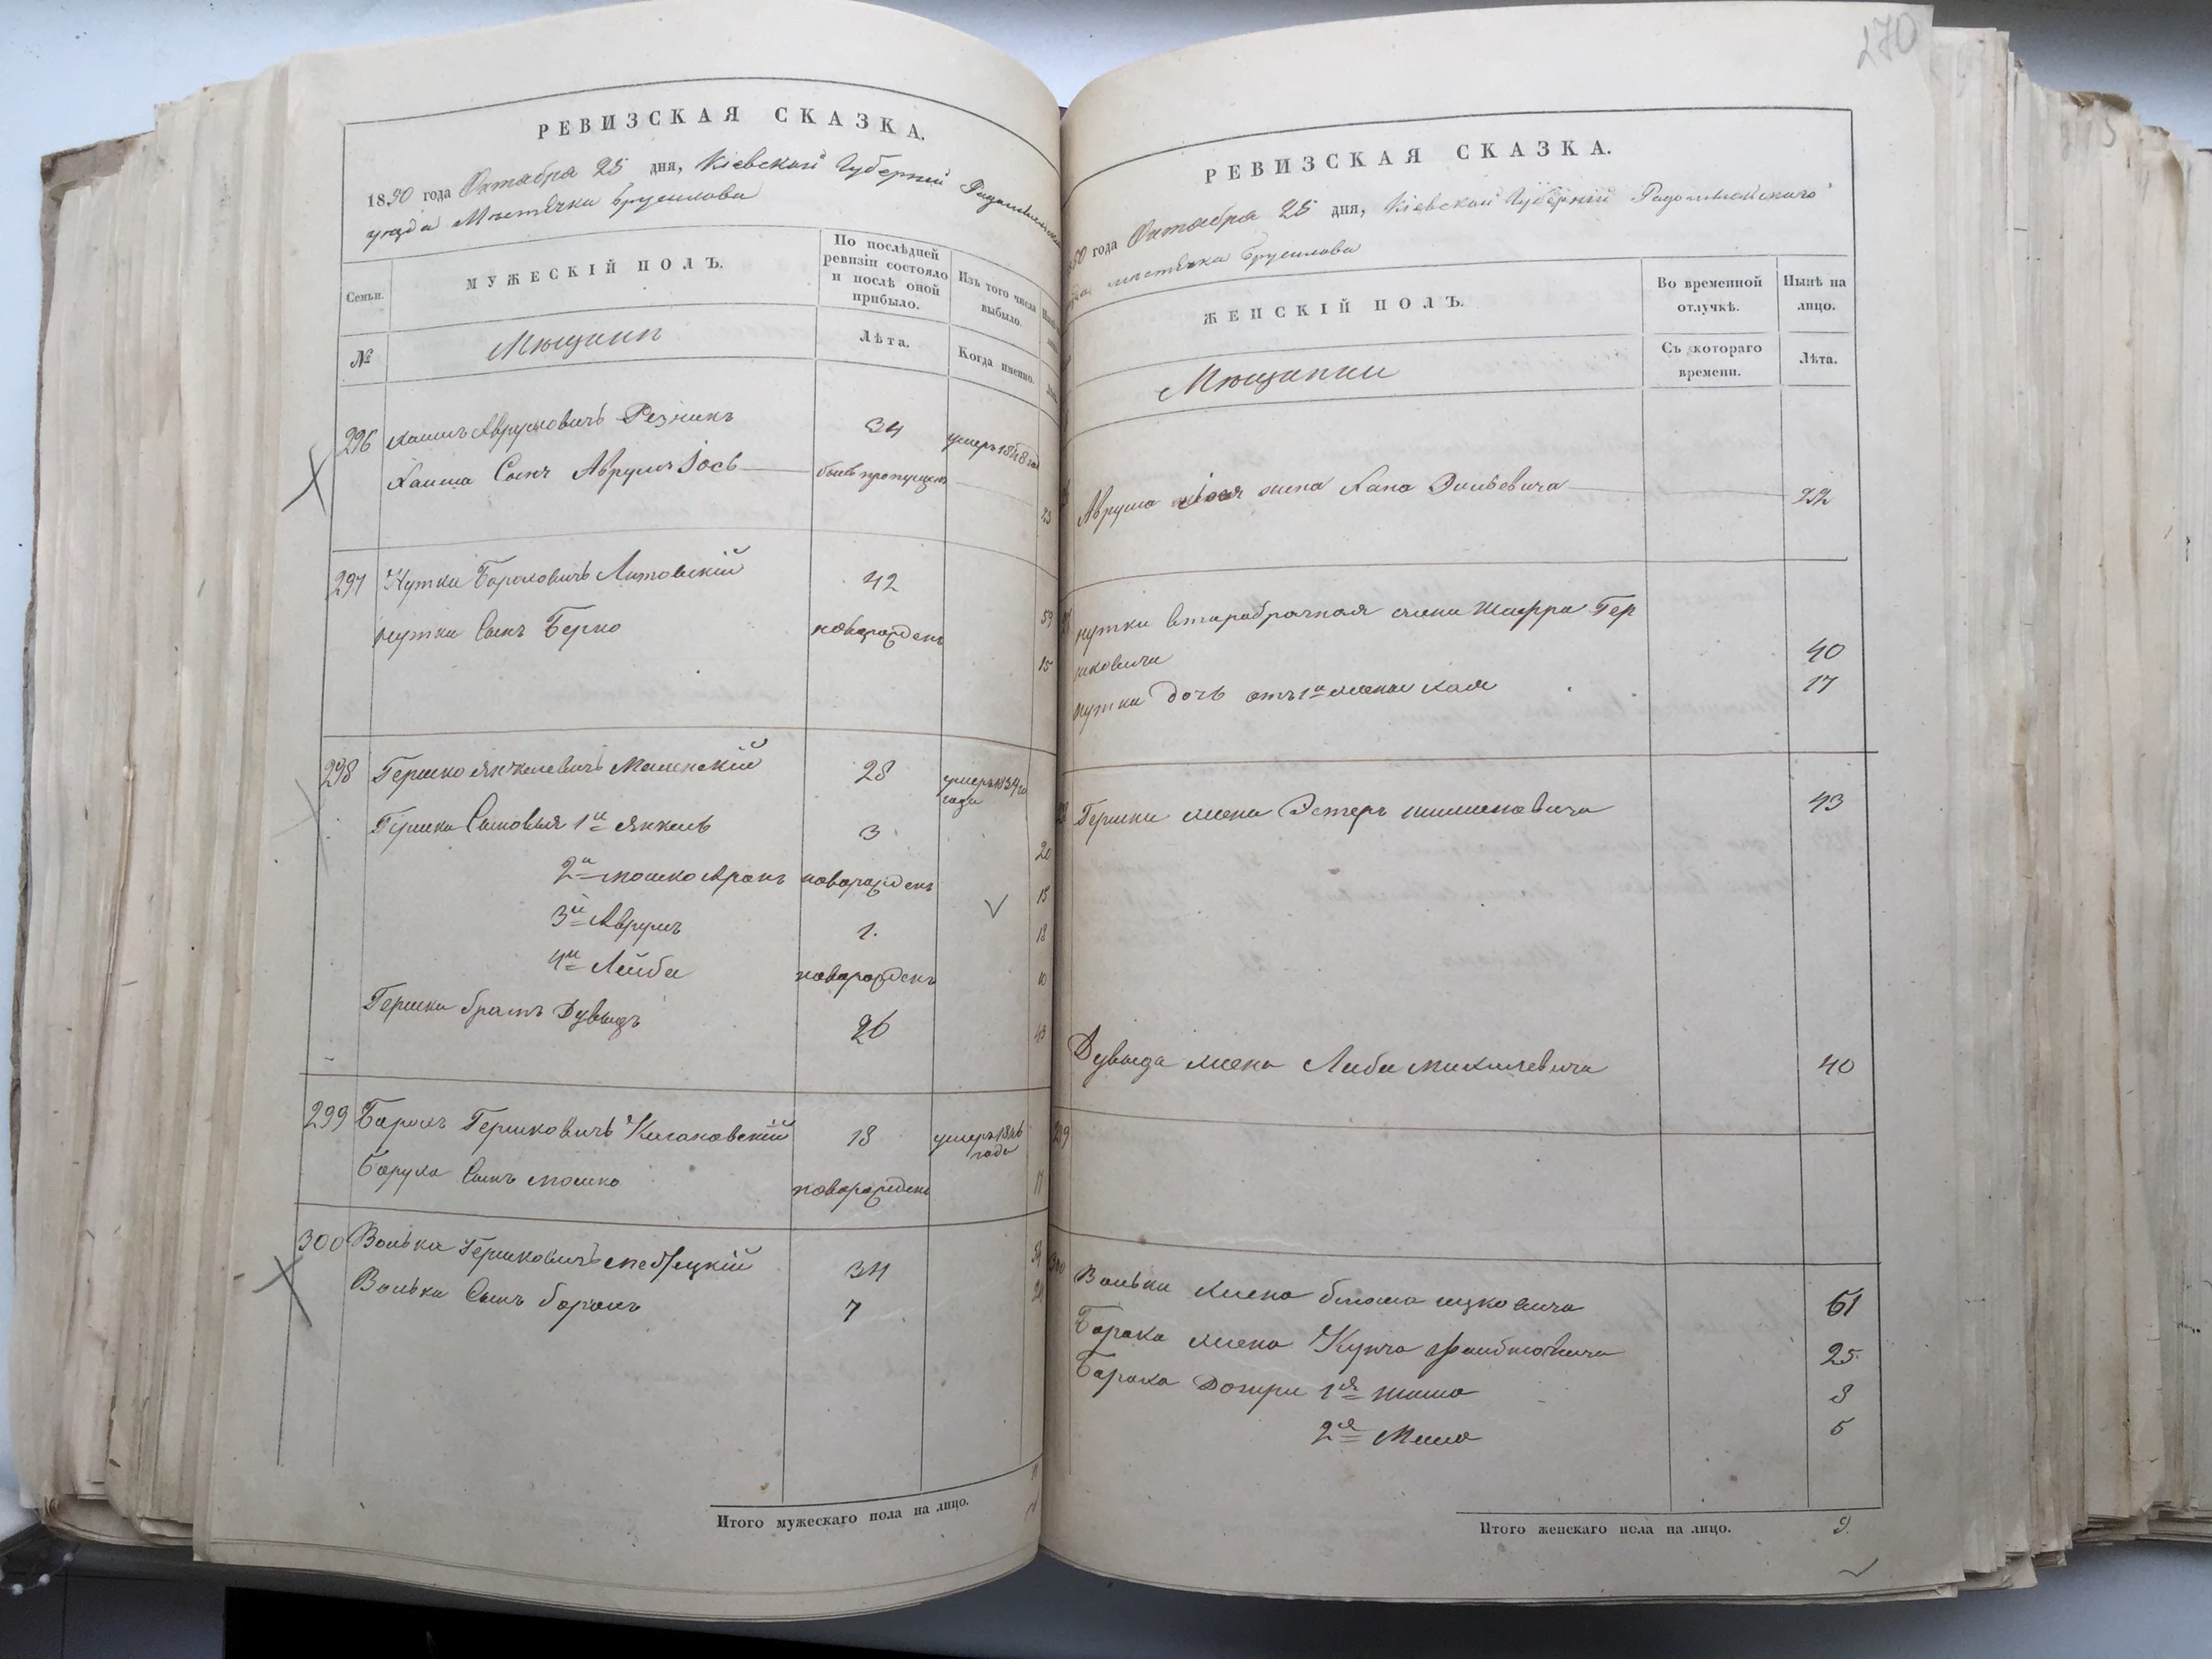 270
РЕВИЗСКАЯ СКАЗКА.
1850 года Октября 25 дня, Кіевской Губерніи Радомысльскаго
уезда Местечка Брусилова
Семьи.
МУЖЕСКІЙ ПОЛЪ.
По послѣдней ревизіи состояло и послѣ оной прибыло.
Изъ того числа выбыло.
№
Мещане
Лѣта.
Когда именно.
296 Хаимъ Аврумовичъ Резникъ 34 умеръ 1848 год
Хаима Сынъ Аврумъ Іось былъ пропущен 23
297 Нутка Бороховичъ Литовскій 42 59
Нутки Сынъ Берко новорожденъ 15
298 Гершко Янкелевичъ Малинскій 28 умеръ 1834го года
Гершка Сыновья 1й Янкель 3 20
2й Мошко Аронъ новорожденъ 15
3й Аврумъ 1. 18
4й Лейба новорожденъ 10
Гершки братъ Дувыдъ 26 43
299 Борохъ Гершковичъ 18 умеръ 1846 года
Боруха Сынъ Мошко новорожденъ 17
300 Волька Гершковичъ 34
Вольки Сынъ Борохъ 7
Итого мужескаго пола на лицо.
РЕВИЗСКАЯ СКАЗКА.
50 года Октября 25 дня, Кіевской Губерніи Радомысльскаго
местечка Брусилова
ЖЕНСКІЙ ПОЛЪ.
Во временной отлучкѣ.
Нынѣ на лицо.
Мещанки
Съ котораго времени.
Лѣта.
Аврума Іося жена Хана 22
Нутки вторабрачная жена Шифра Гер
шковича 40
Нутки дочь отъ 1й жены Хая 17
Гершки жена Эстеръ 43
Дувыда жена Либа Михелевича 40
299
300 Вольки жена Блюма Ицковича 61
Бороха жена 25
Бороха Дочери 1я 8
2я 5
Итого женскаго пола на лицо. 9.